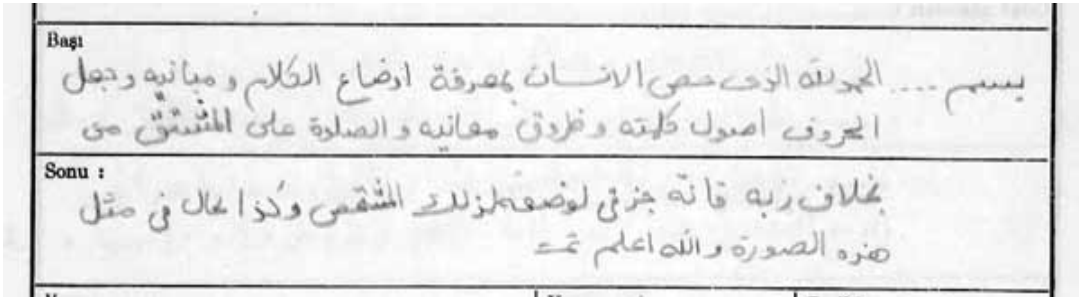 Başı
بسم .... الحمد لله الذى خص الانسان بمعرفة اوضاع الكلام و مبانيه وجعل
الحروف اصول كلمته و ظروف معانيه و الصلوة على المشتق من
Sonu :
بخلاف زيد فانه جزئى لوضعه لذلك المشخص وكذا الحال فى مثل
هذه الصورة و الله اعلم تمت